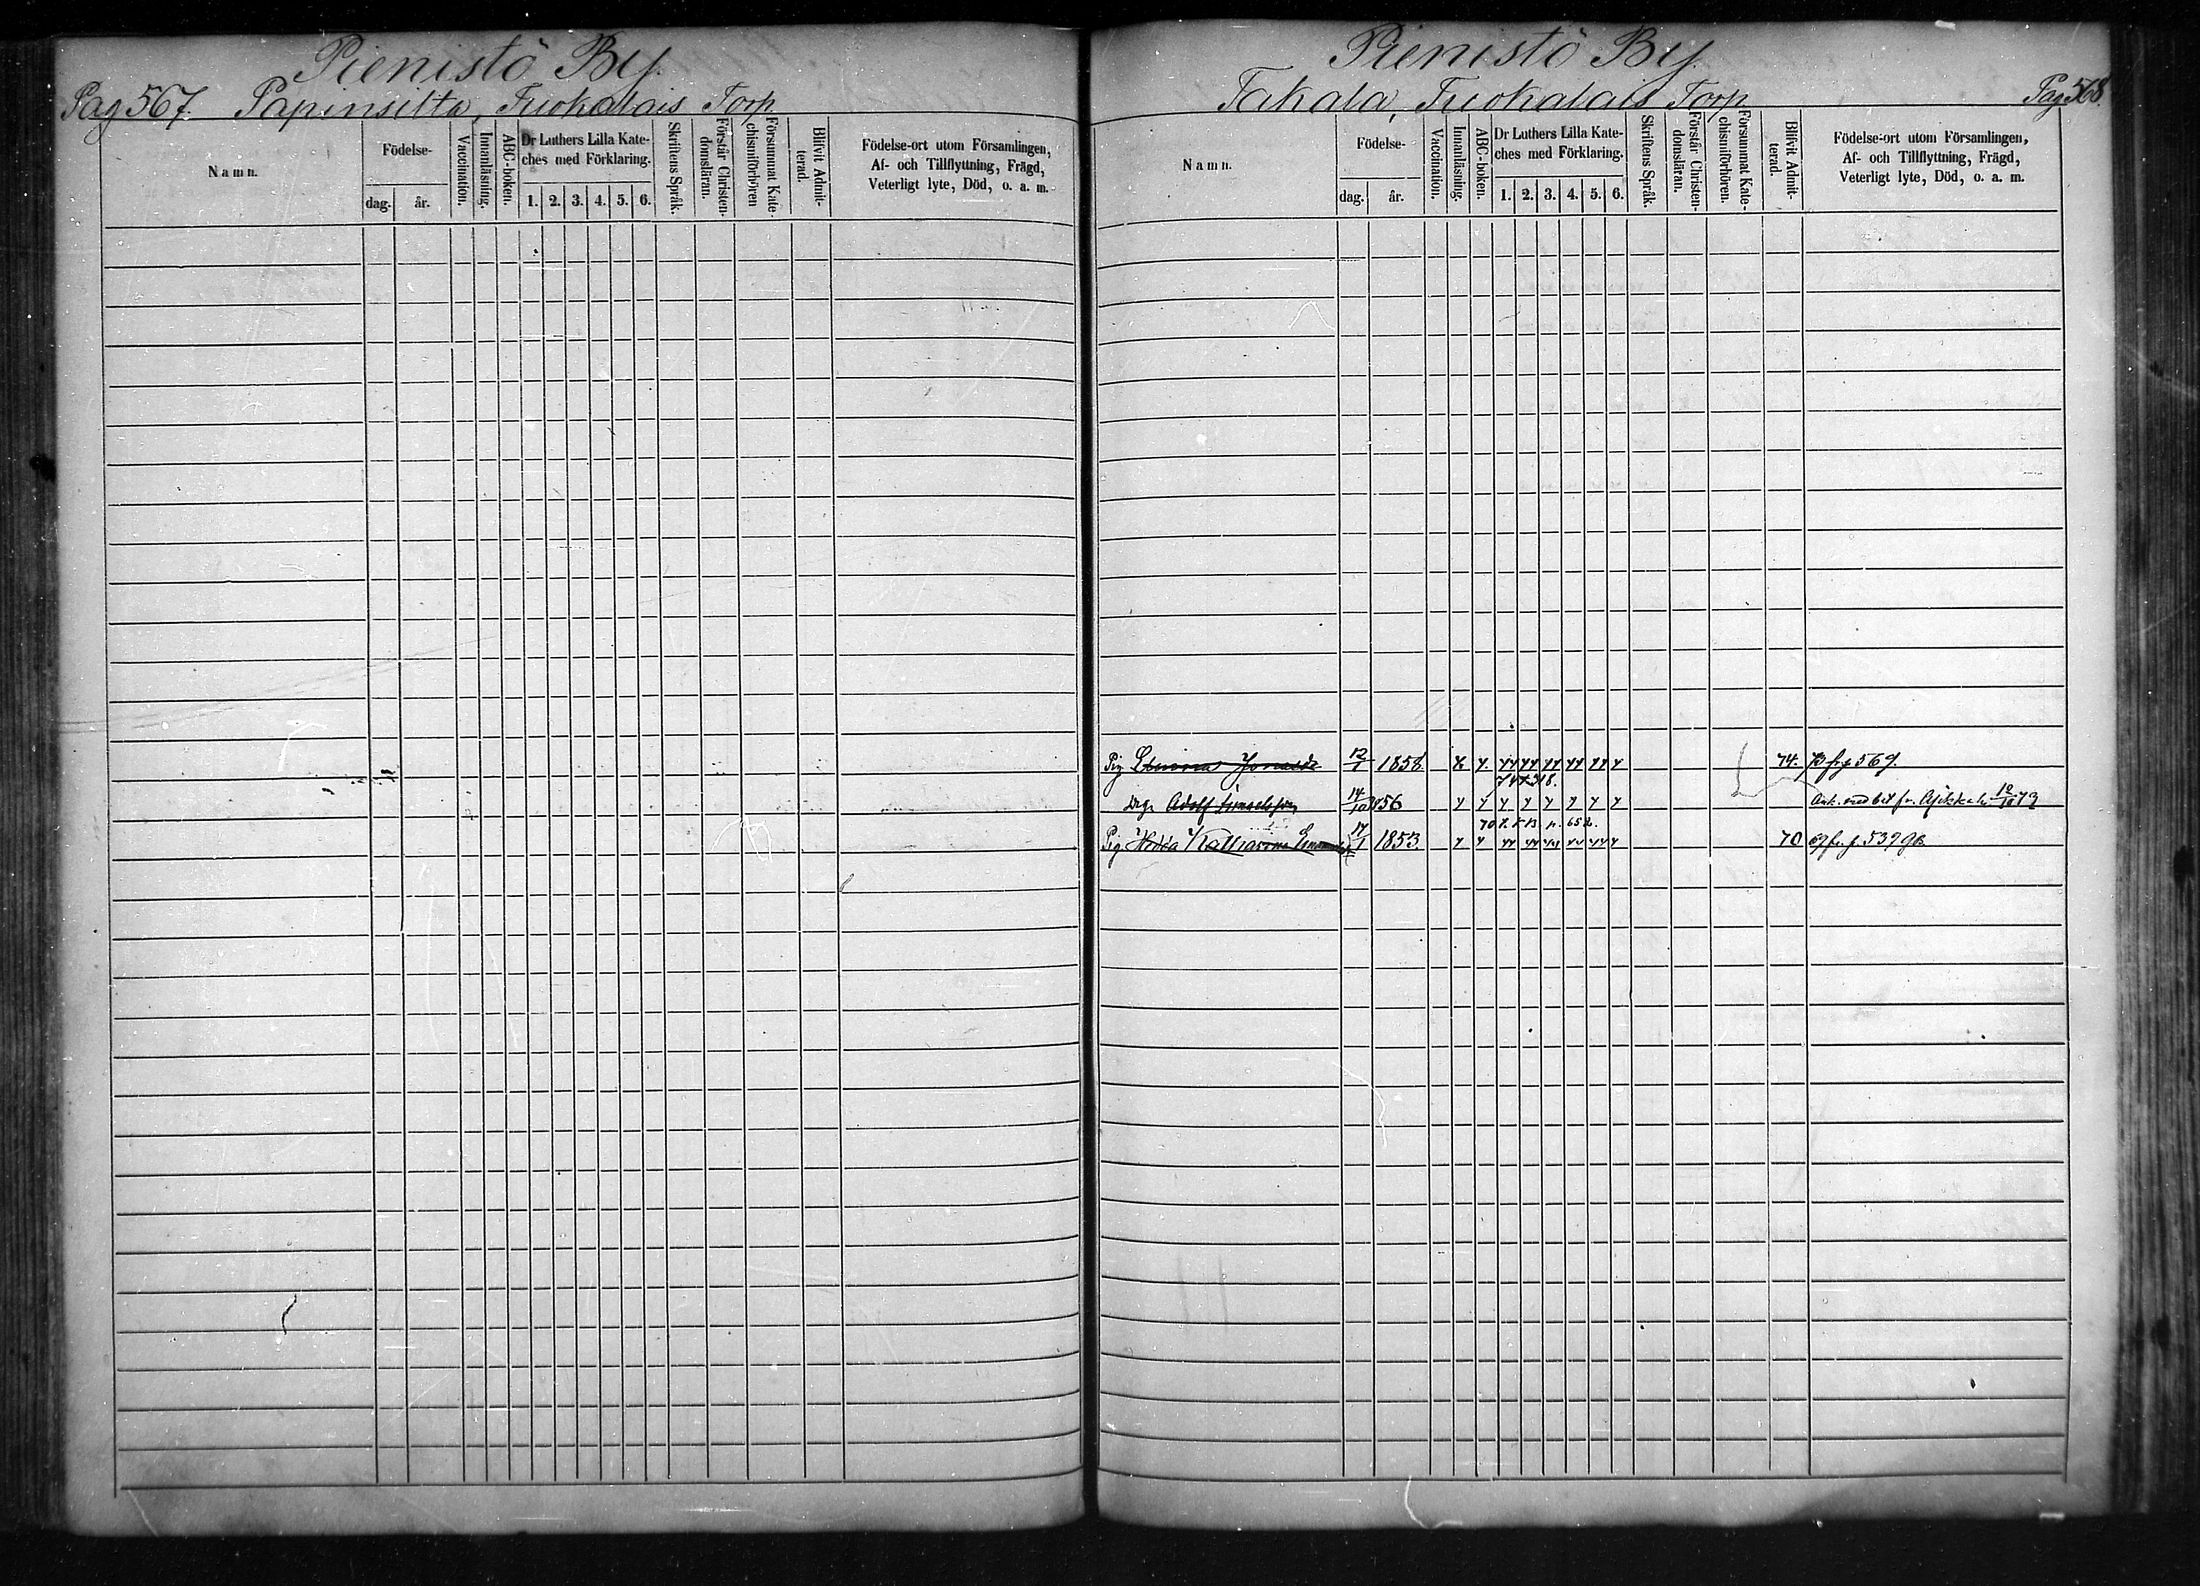 Pienistö By.
Pag 567. Papinsilta, Tuokalais Torp
Namn.
Födelse-
dag. år.
Vaccination.
Innanläsning.
ABC-boken.
Dr Luthers Lilla Kate-
ches med Förklaring.
1. 2. 3. 4. 5. 6.
Skriftens Språk.
Förstår Christen-
domsläran.
Försummat Kate-
chismiförhören
Blifvit Admit-
terad.
Födelse-ort utom Församlingen,
Af- och Tillflyttning, Frägd,
Veterligt lyte, Död, o. a. m.
Pienistö By.
Takala, Tuokalais Torp Pag 568.
Namn.
Födelse-
dag. år.
Vaccination.
Innanläsning.
ABC-boken.
Dr Luthers Lilla Kate-
ches med Förklaring.
1. 2. 3. 4. 5. 6.
Skriftens Språk.
Förstår Christen-
domsläran.
Försummat Kate-
chismiförhören.
Blifvit Admit-
terad.
Födelse-ort utom Församlingen,
Af- och Tillflyttning, Frägd,
Veterligt lyte, Död, o. a. m.
Pig. 12/1 1858. 74. 569.
Drg. Adolf 14/10 1856 12/10 73
Pig. Hedda Katharina 17/1 1853. 70 69 fr. p. 537